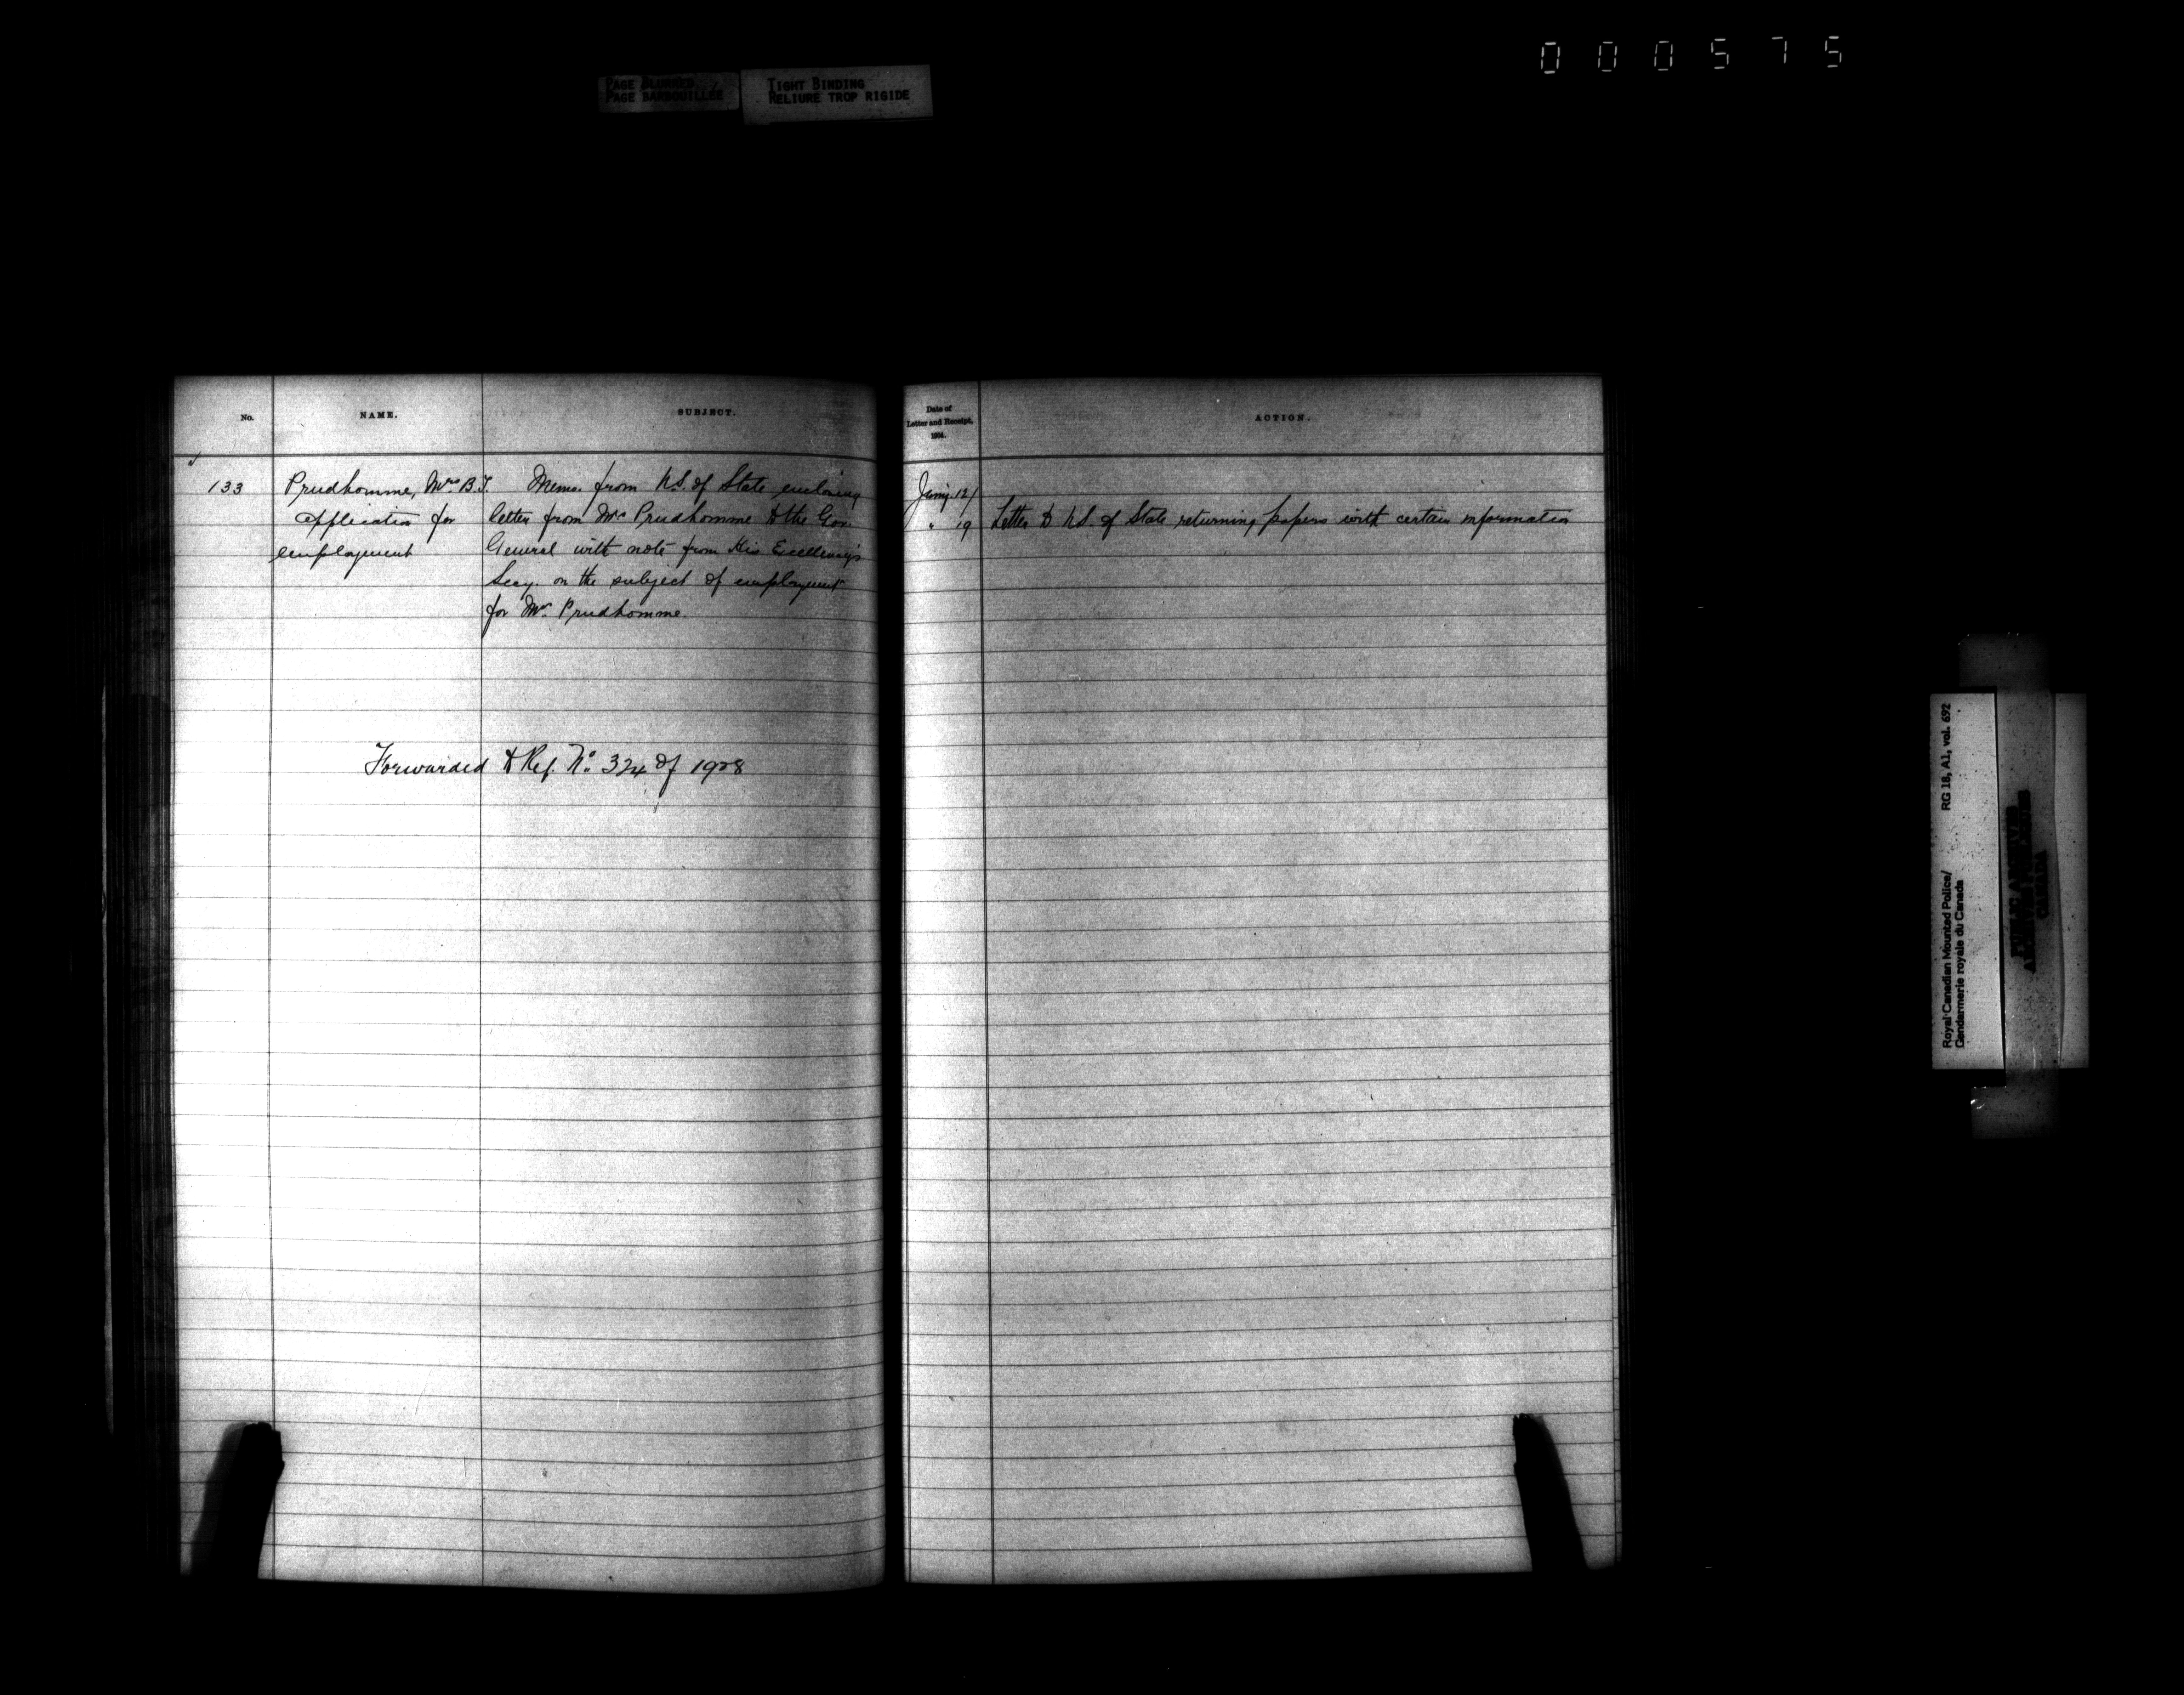 000575
PAGE BLURRED
PAGE BARBOUILLÉE
TIGHT BINDING
RELIURE TROP RIGIDE
No.
NAME.
SUBJECT.
133
Prudhomme, Mrs B.T.
application for
employment
Memo. from U.S. of State enclosing
letter from Mrs Prudhomme to the Gov.
General with note from His Excellency's
Secy. on the subject of employment
for Mr. Prudhomme.
Forwarded to Ref. No. 324 of 1908
Date of
Letter and Receipt,
1904.
ACTION.
Jany. 12/
" 19 Letter to U.S. of State returning papers with certain information
Royal Canadian Mounted Police/ RG 18, A1, vol. 692
Gendarmerie royale du Canada
PUBLIC ARCHIVES
ARCHIVES PUBLIQUES
CANADA